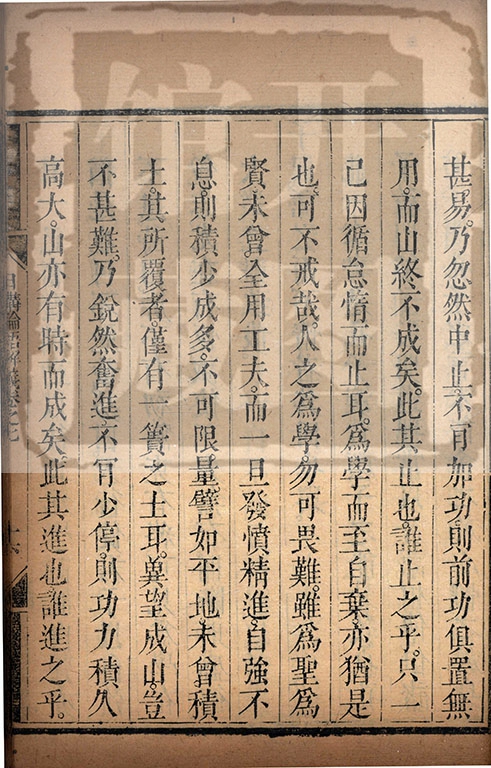 甚易。乃忽然中止。不肯加功。則前功俱置無
用。而山終不成矣。此其止也。誰止之乎。只一
己因循怠惰而止耳。爲學而至自棄。亦猶是
也。可不戒哉。人之爲學。勿可畏難。雖爲聖爲
賢。未曾全用工夫。而一旦發憤精進。自強不
息。則積少成多。不可限量。譬如平地未曾積
土。其所覆者僅有一簣之土耳。冀望成山。豈
不甚難。乃銳然奮進。不肯少停。則功力積久
高大。山亦有時而成矣。此其進也。誰進之乎。
日講論語解義卷之七